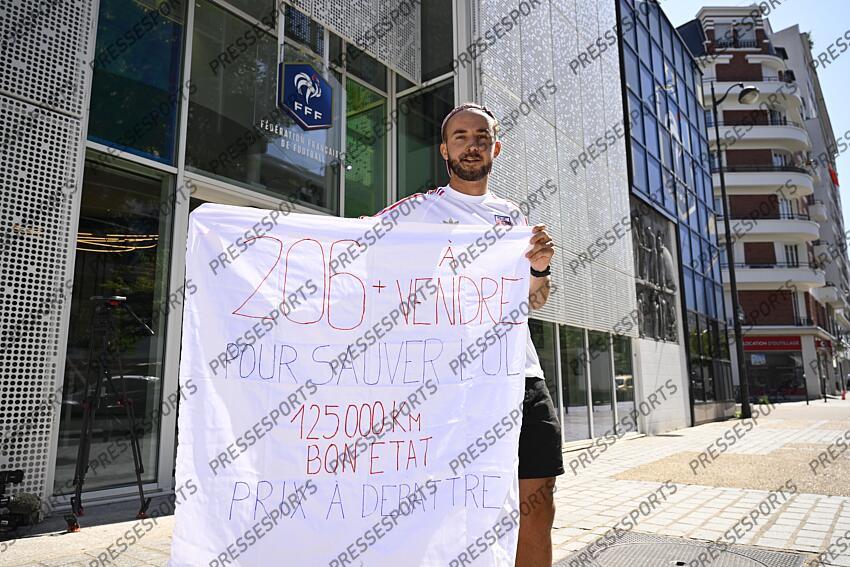 FFF
FÉDÉRATION FRANÇAISE
DE FOOTBALL
206+ À VENDRE
POUR SAUVER L'OL
125000KM
BON ETAT
PRIX À DEBATTRE
LOCATION D'OUTILLAGE
PRESSESPORTS